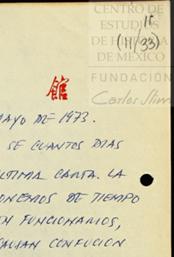 CENTRO DE
ESTUDIOS
DE HISTORIA
DE MÉXICO
FUNDACIÓN
Carlos Slim
(11/33)
館
MAYO DE 1973.
SE CUANTOS DIAS
ULTIMA CARTA. LA
DE TIEMPO
FUNCIONARIOS,
CONFUCION